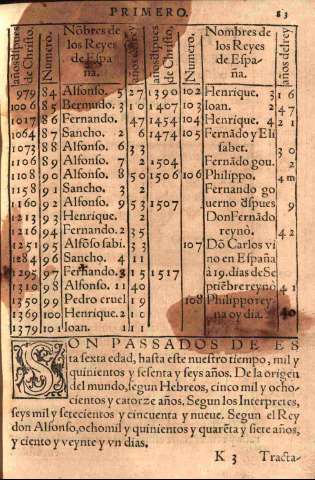 PRIMERO. 83
años dspues de Christo. Numero. Nõbres de los Reyes de España. años del rey
979 84 Alfonso. 5 27
1006 85 Bermudo. 3 10
1017 86 Fernando. 47
1064 87 Sancho. 2 6
1073 88 Alfonso. 6 33
1106 89 Alfonso. 7 2
1108 90 Alfonso. 8 50
1158 91 Sancho. 3 2
1160 92 Alfonso. 9 53
1213 93 Henrique. 3
1216 94 Fernando. 2 35
1251 95 Alfõso sabi. 33
1284 96 Sancho. 4 11
1295 97 Fernando. 3 15
1310 98 Alfonso. 11 40
1350 99 Pedro cruel 19
1369 100 Henrique. 2
1379 101 Ioan. 1 11
años dspues de Christo. Numero. Nombres de los Reyes de España. años del rey
1390 102 Henrique. 3 16
1407 103 Ioan. 2 47
1454 104 Henrique. 4 21
1474 105 Fernãdo y Elisabet. 30
1504 Fernãdo gou. 2
1506 106 Philippo. 4m
1507 Fernando gouerno dspues Don Fernãdo reynò. 42
1517 107 Dõ Carlos vino en España à 19. dias de Septiẽbre reynò 41
108 Philippo reyna oy dia. 40
SON PASSADOS DE ESta sexta edad, hasta este nuestro tiempo, mil y
quinientos y sesenta y seys años. De la origen
del mundo, segun Hebreos, cinco mil y ochocientos
y catorze años. Segun los Interpretes,
seys mil y setecientos y cincuenta y nueue. Segun el Rey
don Alfonso, ocho mil y quinientos y quarẽta y siete años,
y ciento y veynte y vn dias.
K 3 Tracta-